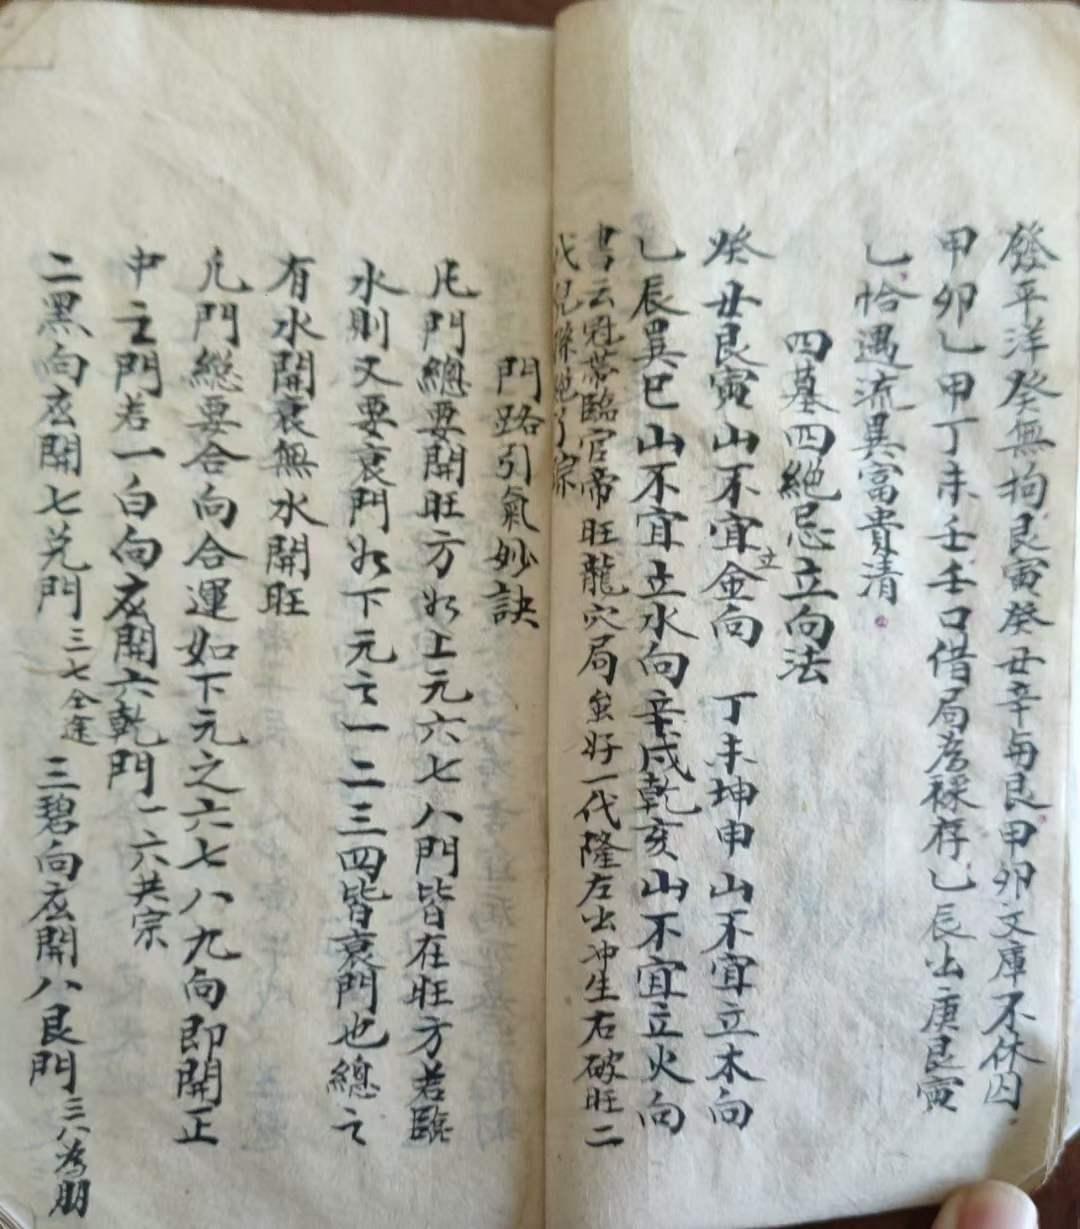 發平洋癸無拘艮寅癸丑辛每艮甲卯文庫不休囚
甲卯乙甲丁未壬壬口借局存乙辰出庚艮寅
乙恰遇流巽富貴清
四墓四絕忌立向法
癸丑艮寅山不宜立金向　丁未坤申山不宜立木向
乙辰巽巳山不宜立水向辛戌乾亥山不宜立火向
書云冠帶臨官帝旺龍穴局虽好一代隆左出冲生右破旺二
代兒孫絕了踪
門路引氣妙訣
凡門總要開旺方如上元六七八門皆在旺方若臨
水則又要衰門如下元之一二三四皆衰門也總之
有水開衰無水開旺
凡門總要合向合運如下元之六七八九向即開正
中之門若一白向宜開六乾門一六共宗
二黑向宜開七兌門三七仝途　三碧向宜開八艮門三八為朋